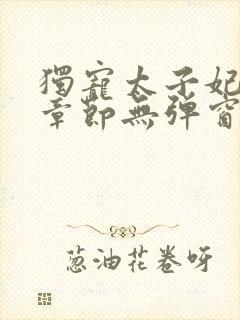 獨寵太子妃
章節無彈窗
葱油花卷呀